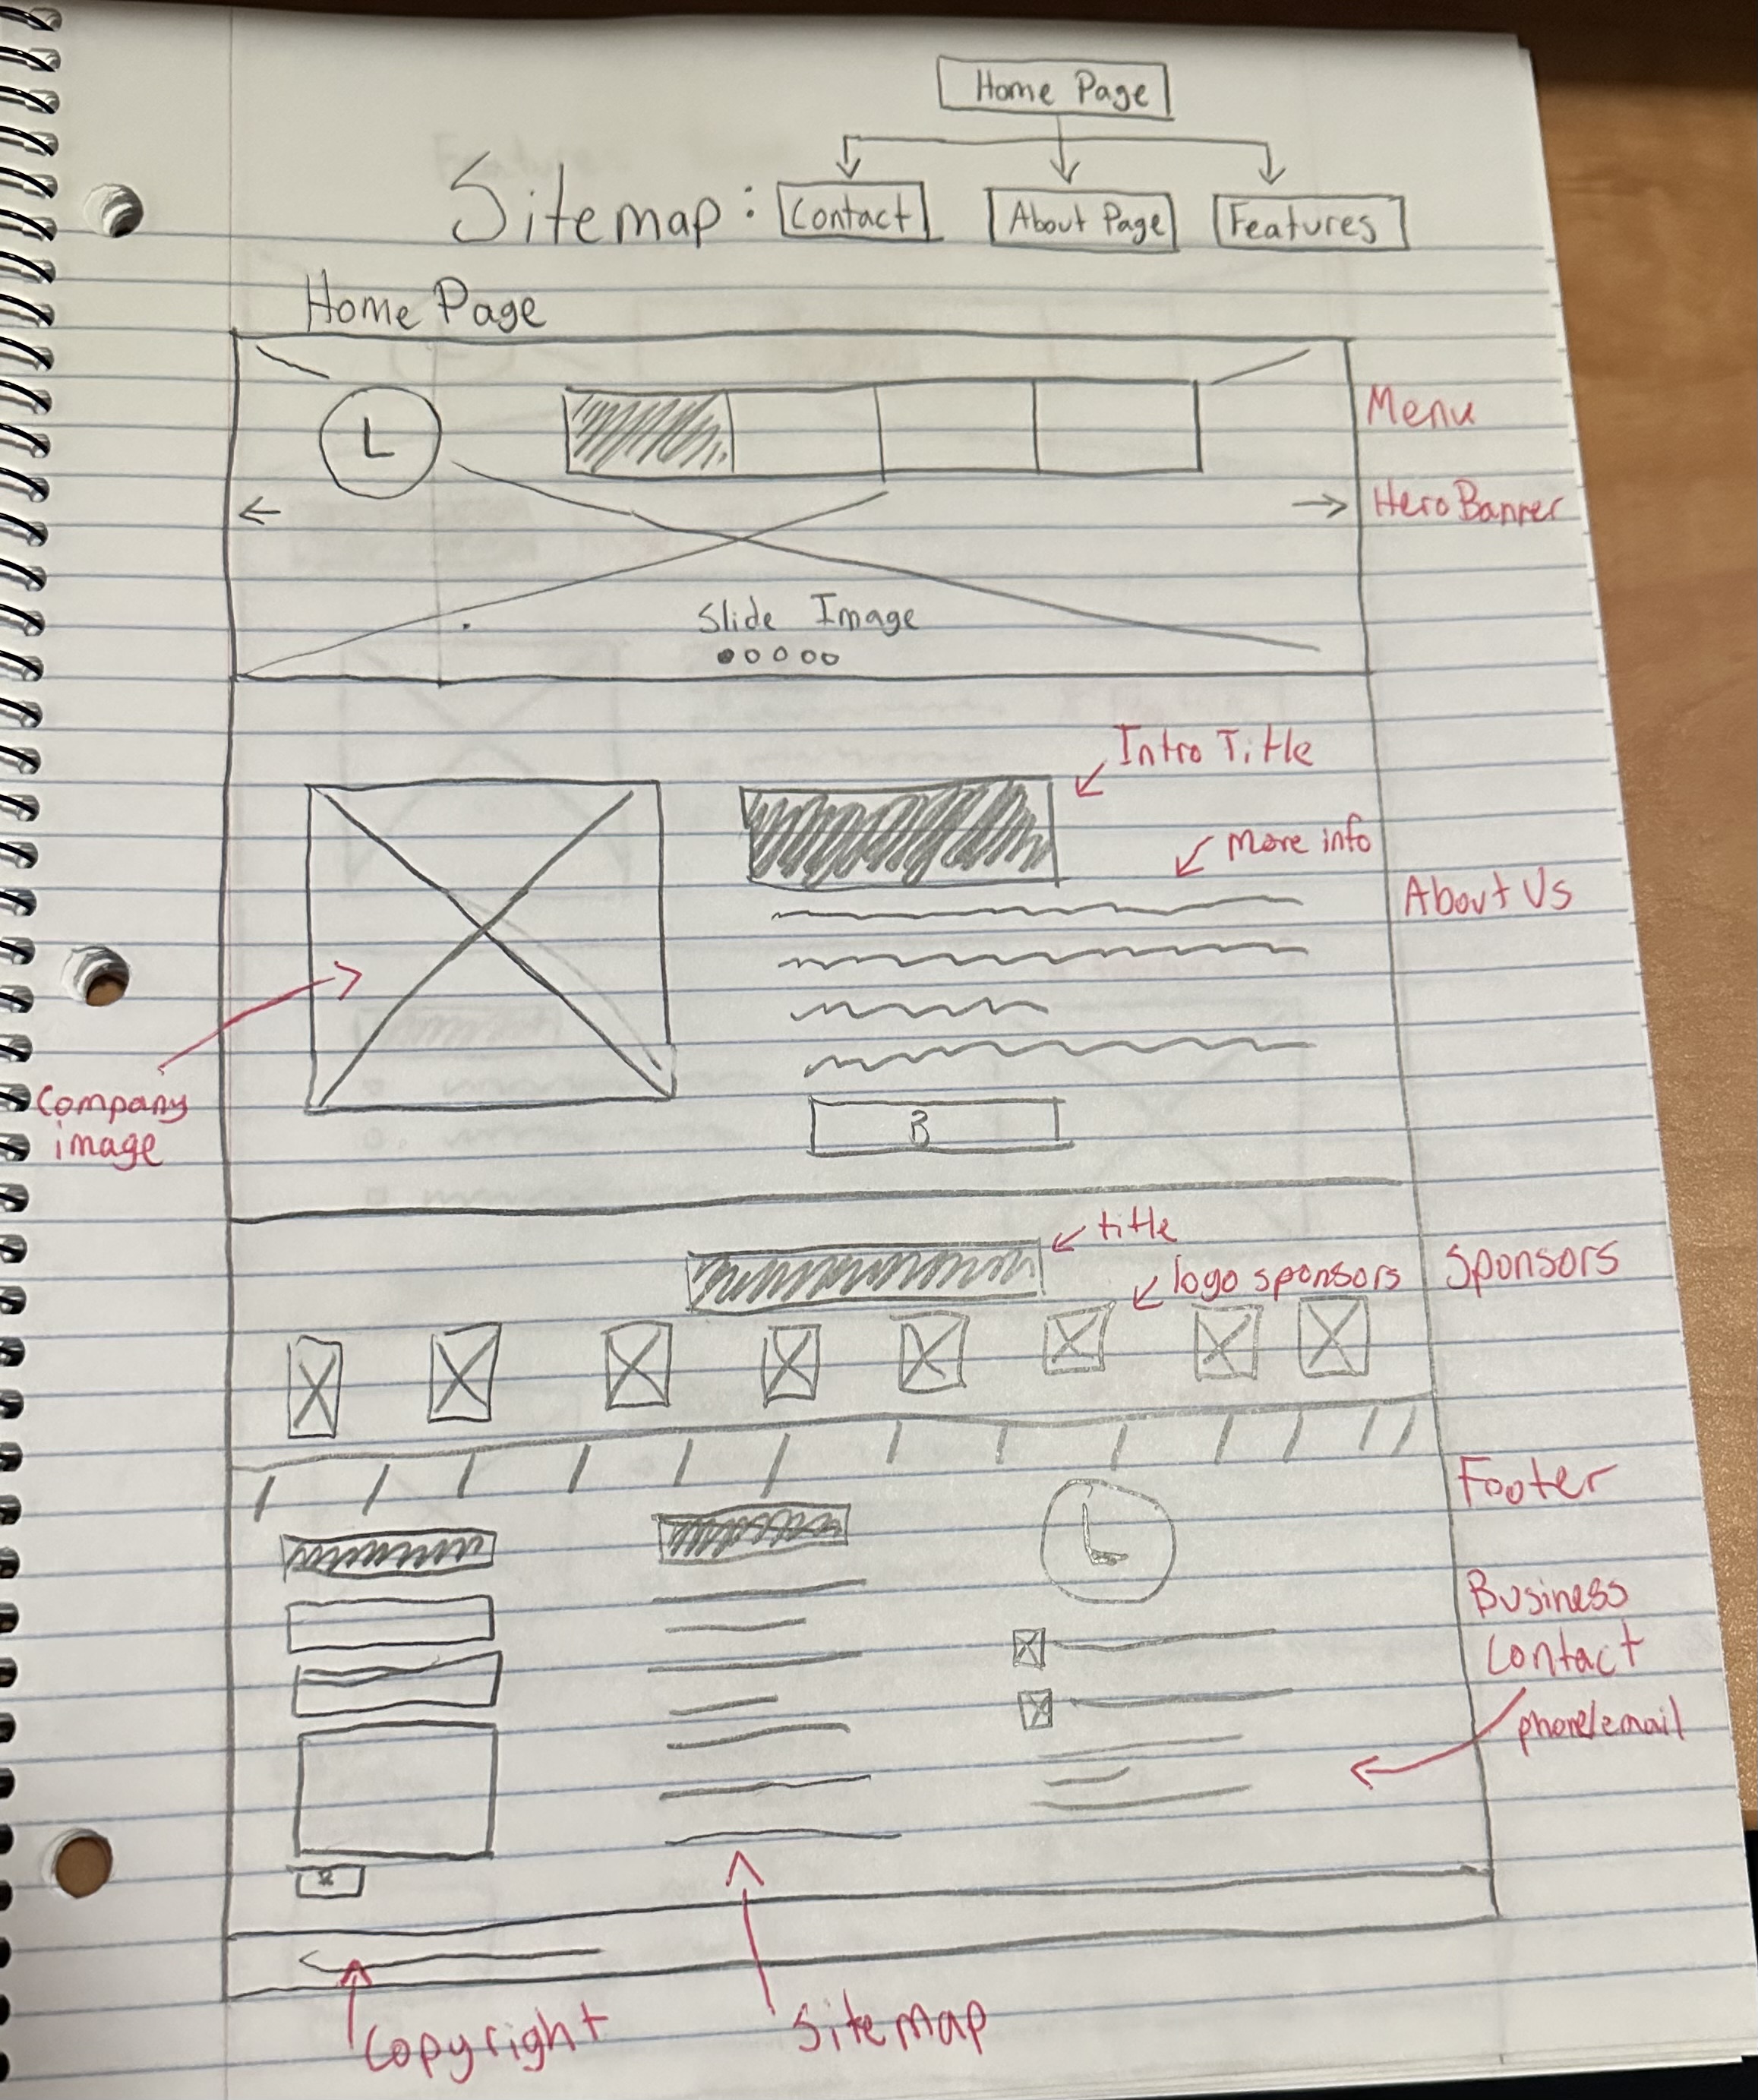 Home Page
Sitemap: Contact About Page Features
Home Page
L
Menu
Hero Banner
Slide Image
Intro Title
More info
About Us
Company
image
B
title
logo sponsors
Sponsors
Footer
L
Business
Contact
phone/email
Copyright
Sitemap